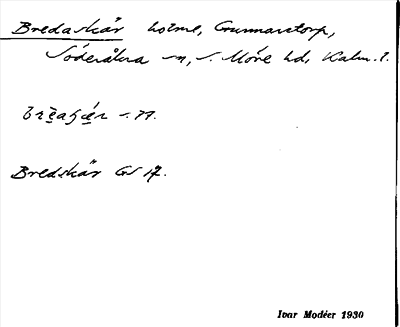 Bredaskär holme, Gunnarstorp,
Söderåkra sn, S. Möre hd, Kalm. l.
Bredskär GS 17.
Ivar Modéer 1930